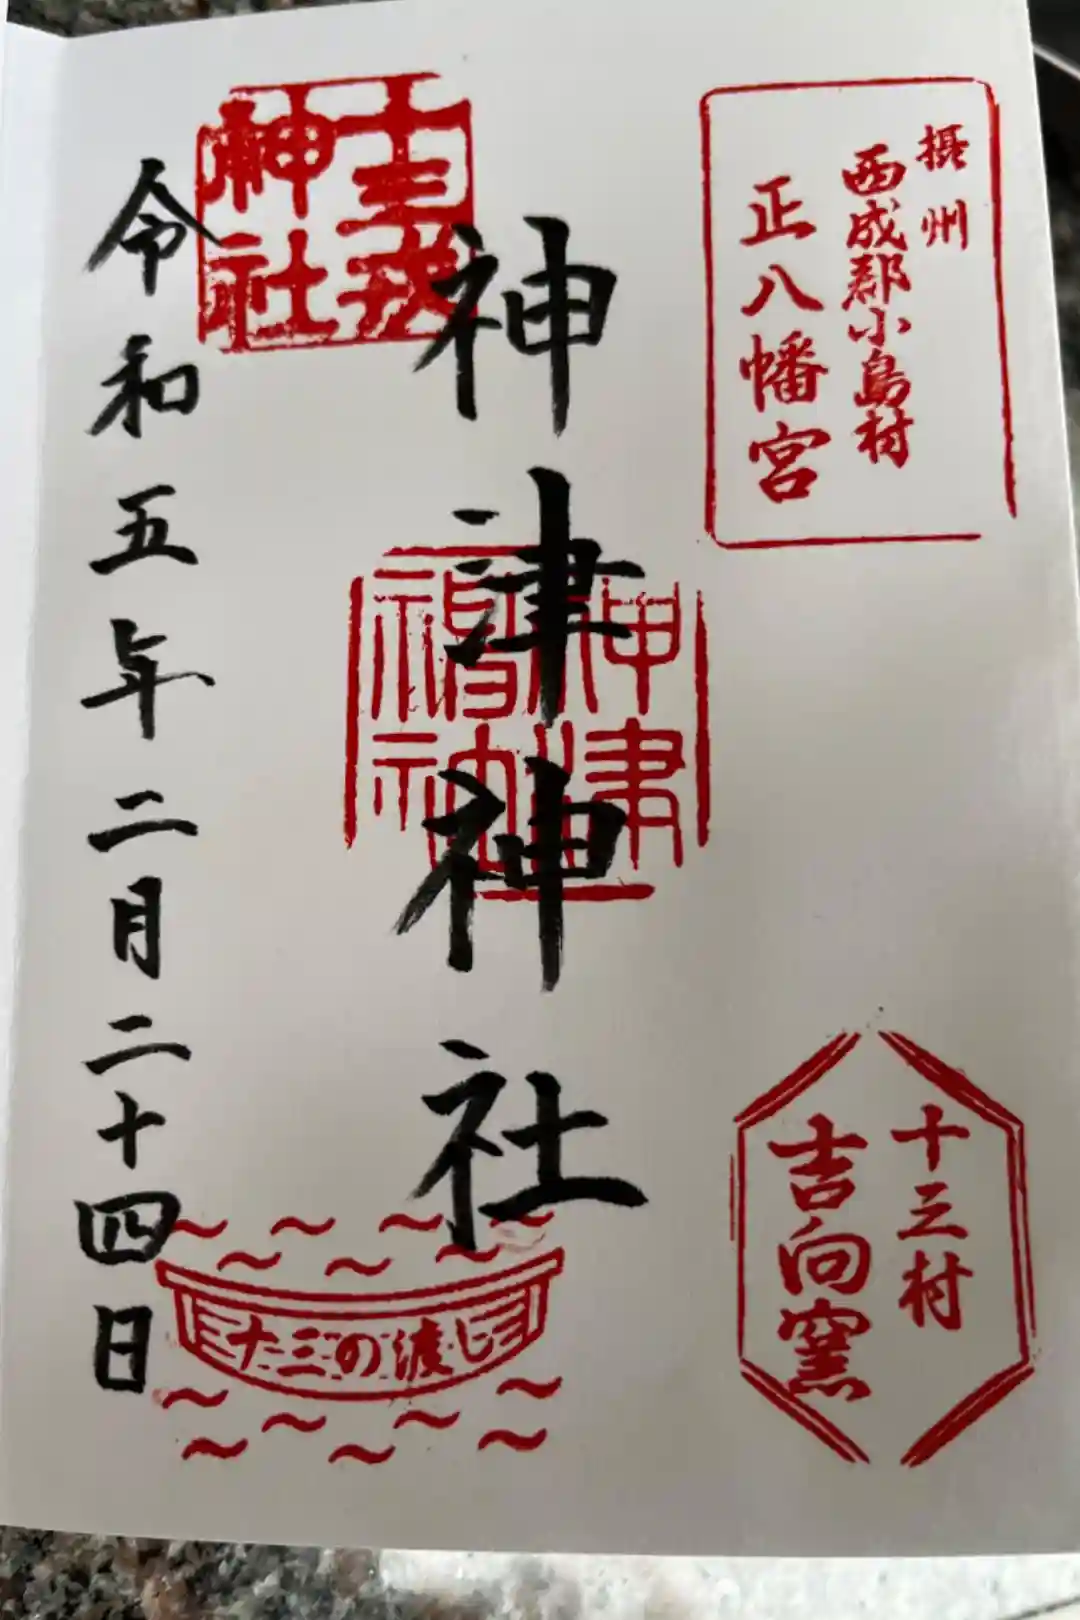 摂州
西成郡小島村
正八幡宮
十三村
吉向窯
神津神社
十三戎
神社
神津
十三の渡し
令和五年二月二十四日